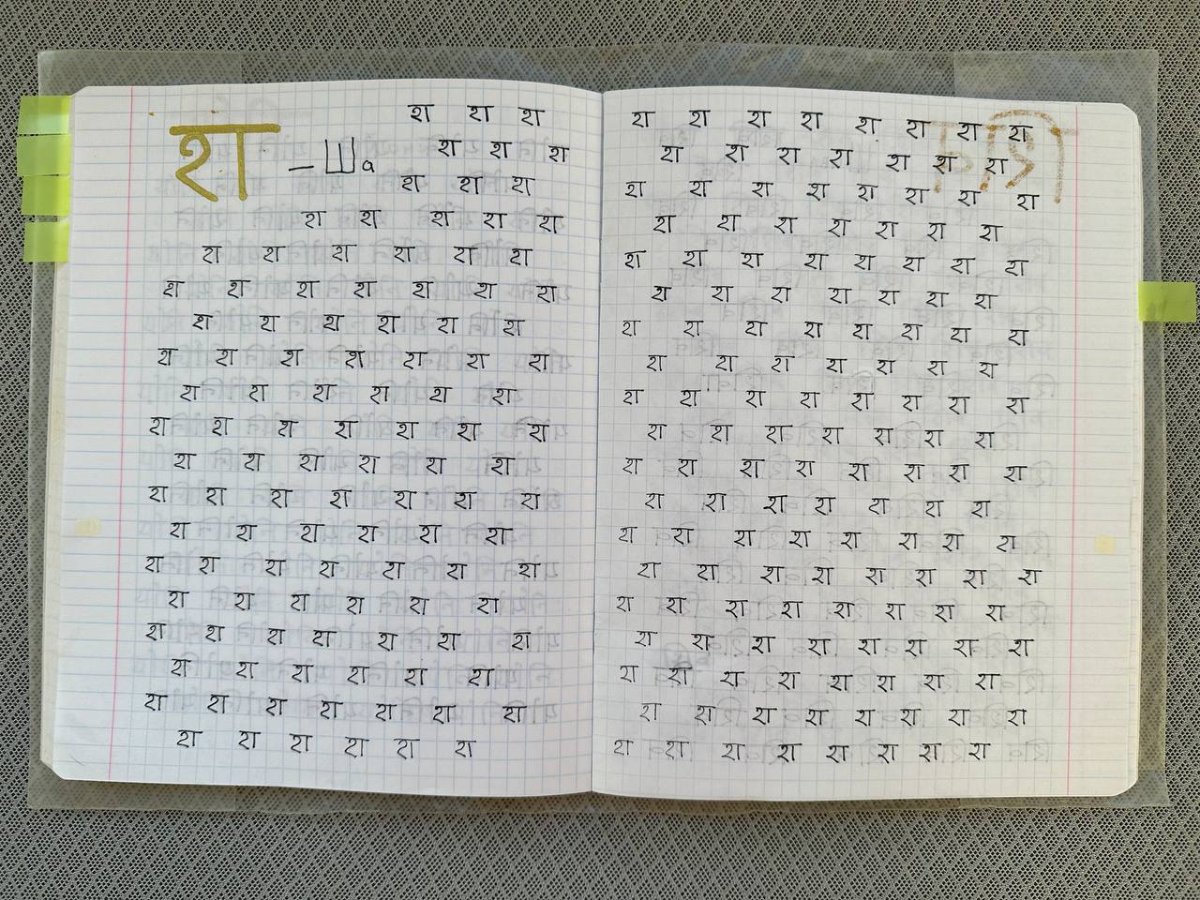 शा शा शा
शा – Ша शा शा शा
शा शा शा
शा शा शा शा शा
शा शा शा शा शा शा
शा शा शा शा शा शा शा
शा शा शा शा शा शा
शा शा शा शा शा शा शा
शा शा शा शा शा शा
शा शा शा शा शा शा शा
शा शा शा शा शा शा
शा शा शा शा शा शा शा
शा शा शा शा शा शा
शा शा शा शा शा शा शा
शा शा शा शा शा शा
शा शा शा शा शा शा शा
शा शा शा शा शा शा
शा शा शा शा शा शा शा
शा शा शा शा शा शा
शा शा शा शा शा शा शा शा
शा शा शा शा शा शा शा
शा शा शा शा शा शा शा शा
शा शा शा शा शा शा शा
शा शा शा शा शा शा शा शा
शा शा शा शा शा शा शा
शा शा शा शा शा शा शा शा
शा शा शा शा शा शा शा
शा शा शा शा शा शा शा शा
शा शा शा शा शा शा शा
शा शा शा शा शा शा शा शा
शा शा शा शा शा शा शा
शा शा शा शा शा शा शा शा
शा शा शा शा शा शा शा शा
शा शा शा शा शा शा शा शा
शा शा शा शा शा शा शा शा
शा शा शा शा शा शा शा शा
शा शा शा शा शा शा शा शा
शा शा शा शा शा शा शा शा